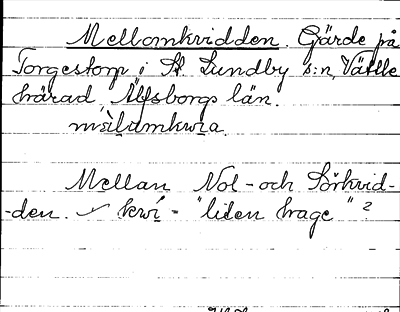 Mellomkvidden. Gärde på
Torgestorp i St. Lundby s:n, Vättle
härad, Älfsborgs län.
mèlamkwìa.
Mellan Nol- och Sörkvid-
-den. kwí - "liten hage" ?